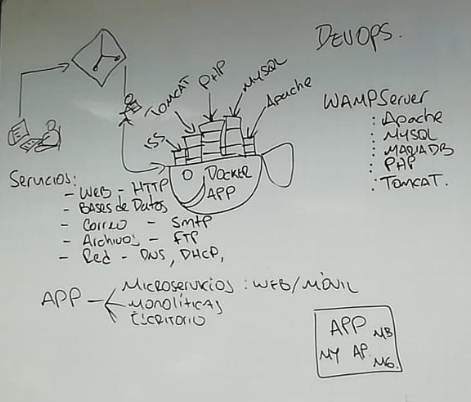 DEVOPS.
TOMCAT
PHP
MYSQL
Apache
DOCKER
APP
WAMPServer
: Apache
: MYSQL
: MARIADB
: PHP
: TOMCAT.
Servicios:
- WEB - HTTP
- BASES de DATOS
- Correo - SMTP
- Archivos - FTP
- Red - DNS, DHCP,
APP - Microservicios : WEB/MÓVIL
Monolíticas
Escritorio
APP MB
MY AP. MG.